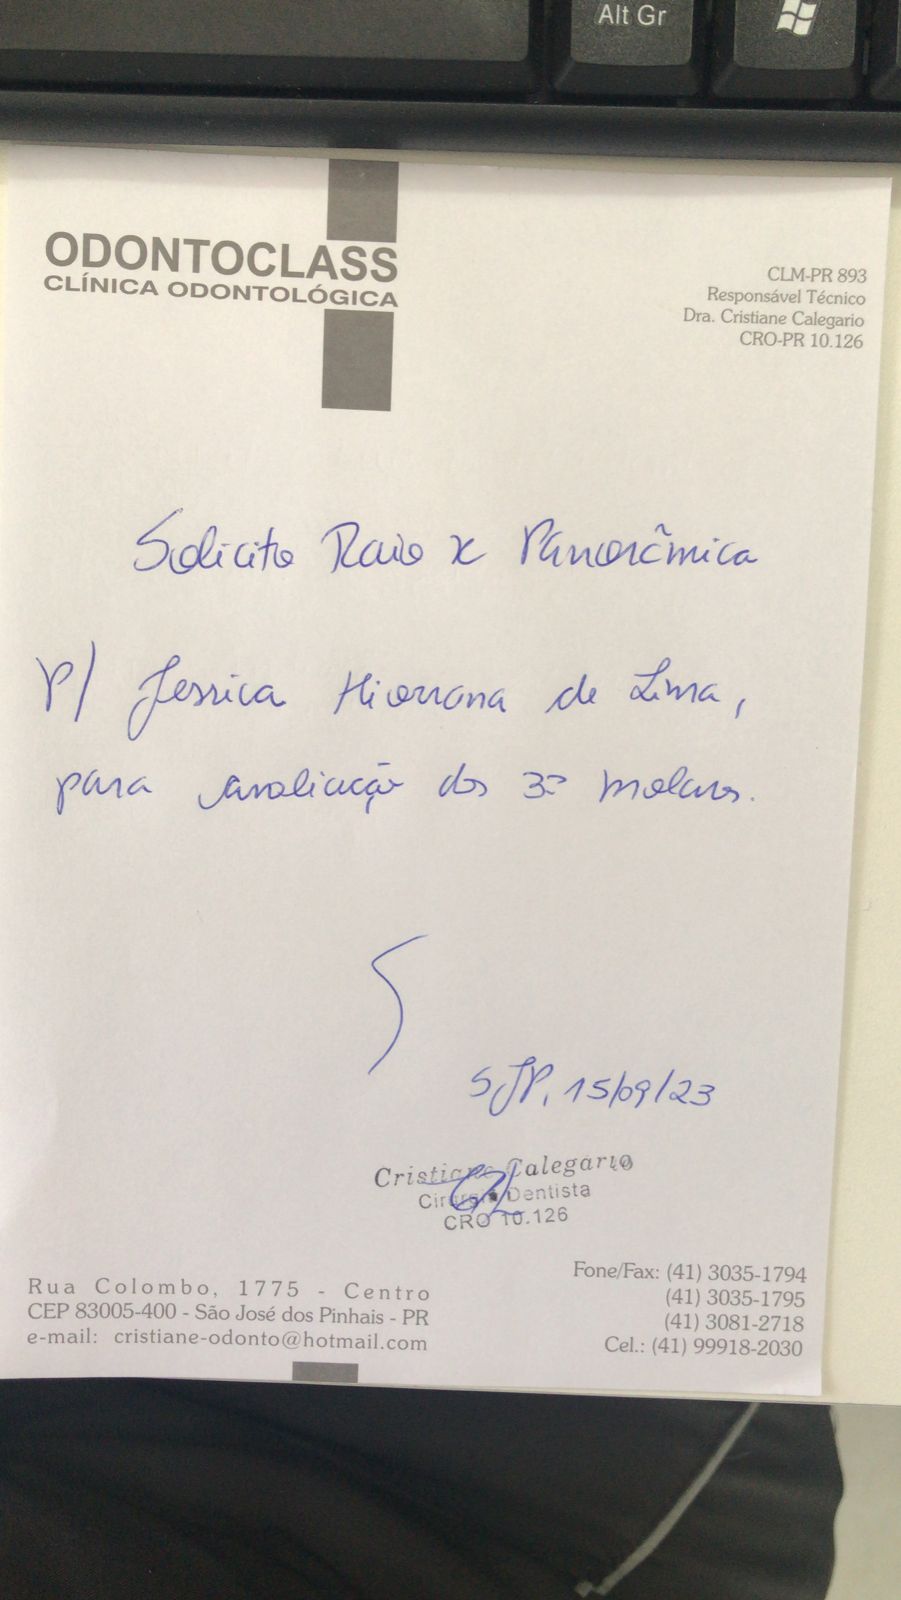 Alt Gr
ODONTOCLASS
CLÍNICA ODONTOLÓGICA
CLM-PR 893
Responsável Técnico
Dra. Cristiane Calegario
CRO-PR 10.126
Solicito Raio x Panorâmica
p/ Jessica de Lima,
para avaliação dos 3º molares.
SJP, 15/09/23
Cristiane Calegario
Cirurgiã Dentista
CRO 10.126
Rua Colombo, 1775 - Centro
CEP 83005-400 - São José dos Pinhais - PR
e-mail: cristiane-odonto@hotmail.com
Fone/Fax: (41) 3035-1794
(41) 3035-1795
(41) 3081-2718
Cel.: (41) 99918-2030